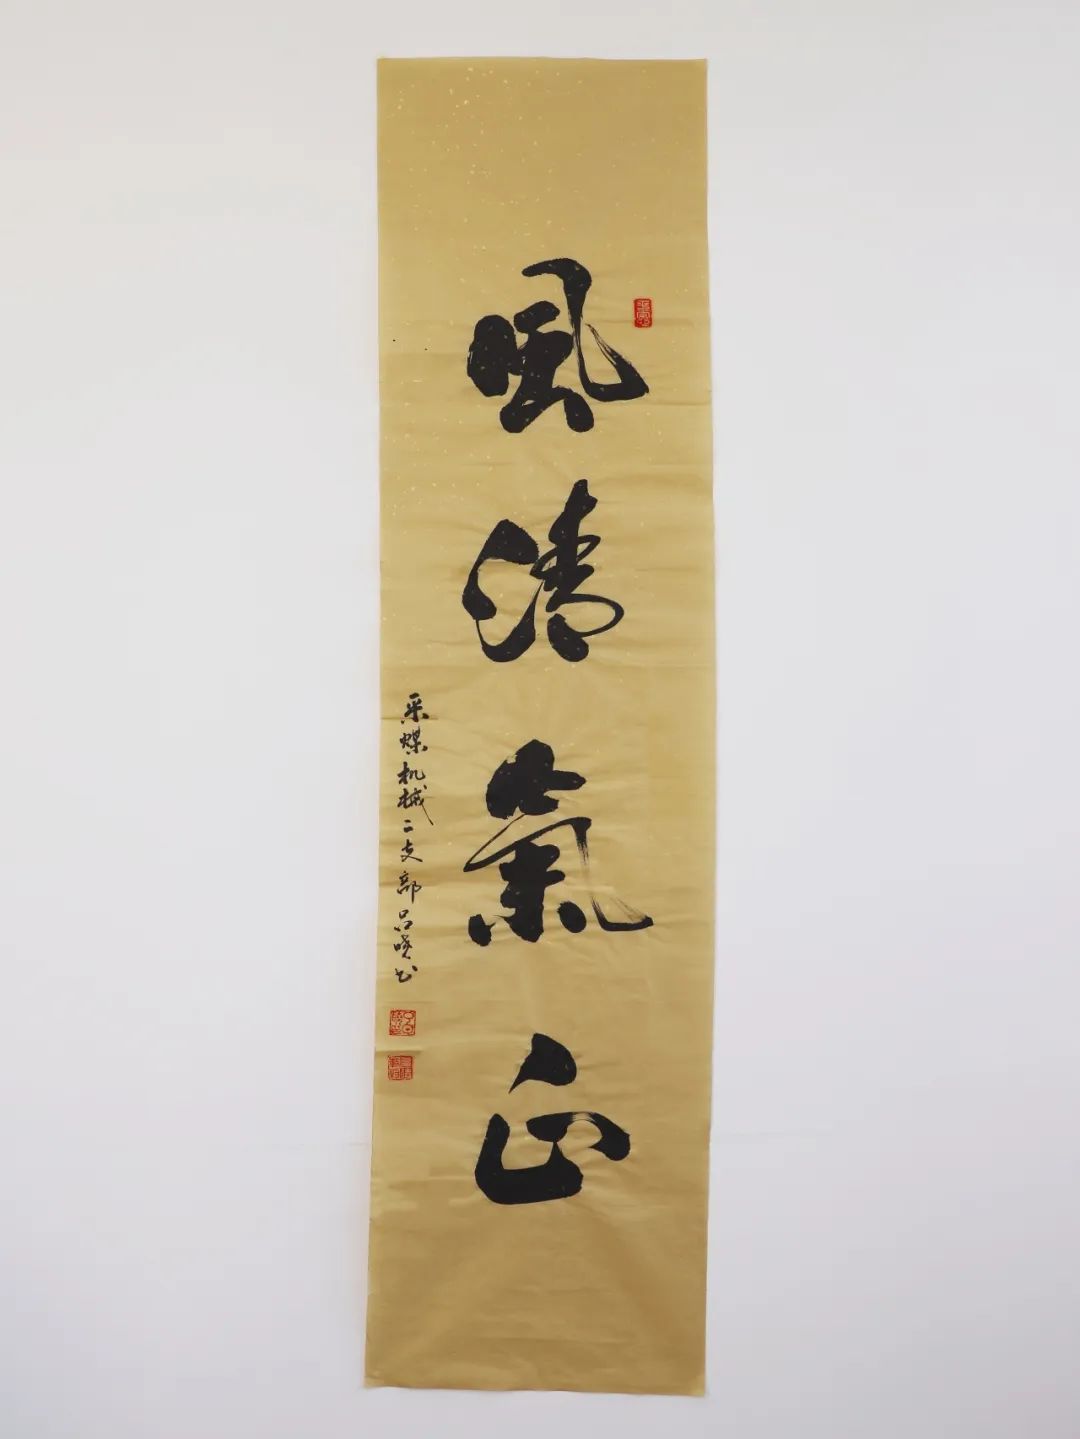 風清氣正
采煤机械二支部吕晓书